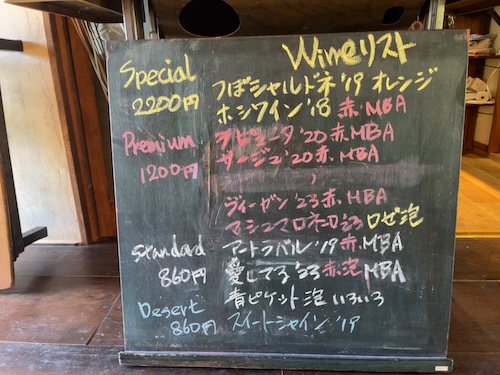 Wineリスト
Special つぼシャルドネ'19 オレンジ
2200円 ホシワイン'18 赤 MBA
Premium ラピュータ'20 赤 MBA
1200円 サージュ'20 赤 MBA
ヴィーゼン'23 赤 MBA
マシュマロネーロ'23 ロゼ泡
Standad アートラバル'19 赤 MBA
860円 愛してる'23 赤泡 MBA
青ピケット 泡 いろいろ
Desert スイートシャイン'19
860円